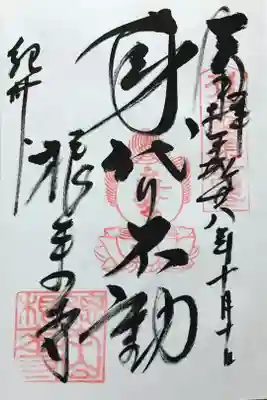 奉拝 平成廿八年十月十日
身代り不動
紀州
根来寺